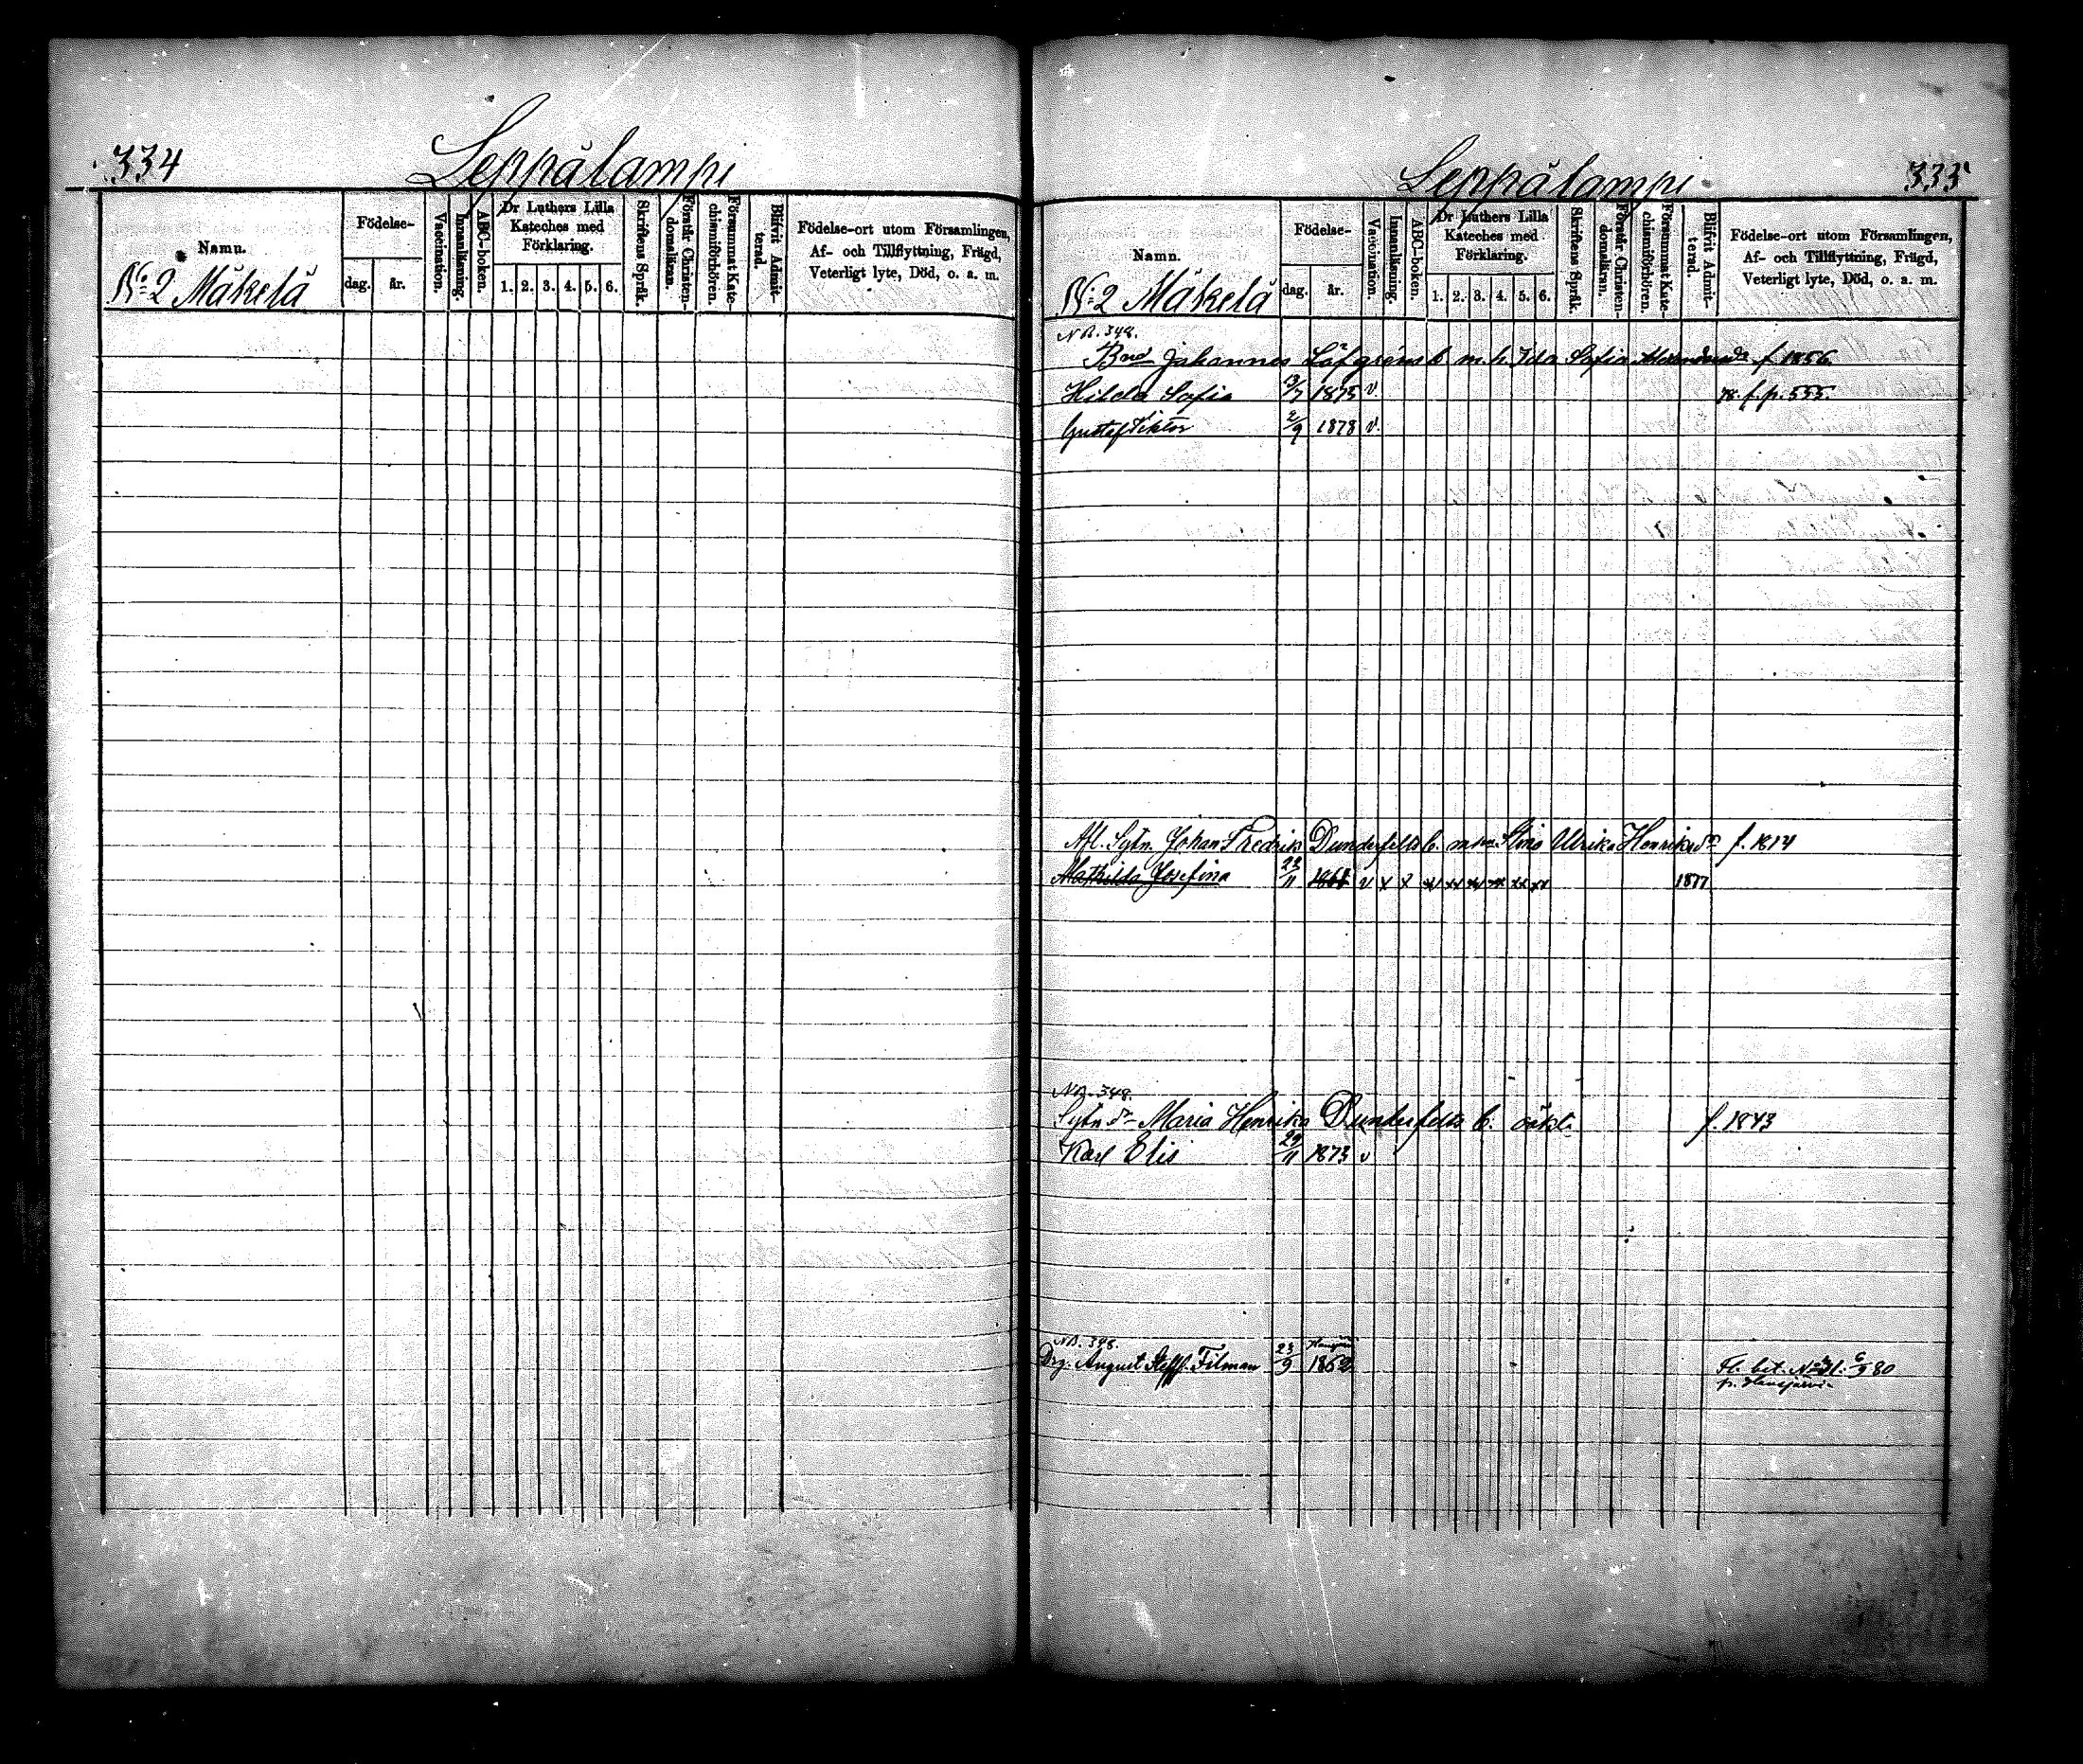 334
Leppälampi
Namn.
Födelse-
dag.
år.
Vaccination.
Innanläsning.
ABC-boken.
Dr Luthers Lilla
Kateches med
Förklaring.
1. 2. 3. 4. 5. 6.
Skriftens Språk.
Förstår Christen-
domsläran.
Försummat Kate-
chismiförhören.
Blifvit Admit-
terad.
Födelse-ort utom Församlingen,
Af- och Tillflyttning, Frägd,
Veterligt lyte, Död, o. a. m.
No 2 Mäkelä
Leppälampi
335
Namn.
Födelse-
dag.
år.
Vaccination.
Innanläsning.
ABC-boken.
Dr Luthers Lilla
Kateches med
Förklaring.
1. 2. 3. 4. 5. 6.
Skriftens Språk.
Förstår Christen-
domsläran.
Försummat Kate-
chismiförhören.
Blifvit Admit-
terad.
Födelse-ort utom Församlingen,
Af- och Tillflyttning, Frägd,
Veterligt lyte, Död, o. a. m.
No 2 Mäkelä
NB. 348.
Bnd Johannes Löfgréns b. m. h. Ida Sofia f. 1856
Hilda Sofia 13/7 1875 v. f. p. 555.
Gustaf Viktor 2/9 1878 v.
Afl. Sytn. Johan Fredrik Dunderfelts b. m. h. Stina Ulrika Henriksdr f. 1814
Mathilda Josefina 23/11 1861 v x x xx xx xx xx xx xx 1877
NB. 348.
Sytn dr Maria Henrika Dunderfelts b. oäkt. f. 1843
Karl Elis 29/11 1873 v
NB. 348.
Drg. August Filman 23/9 1862 Fl. bet. 6/9 80
fr. Hausjärvi